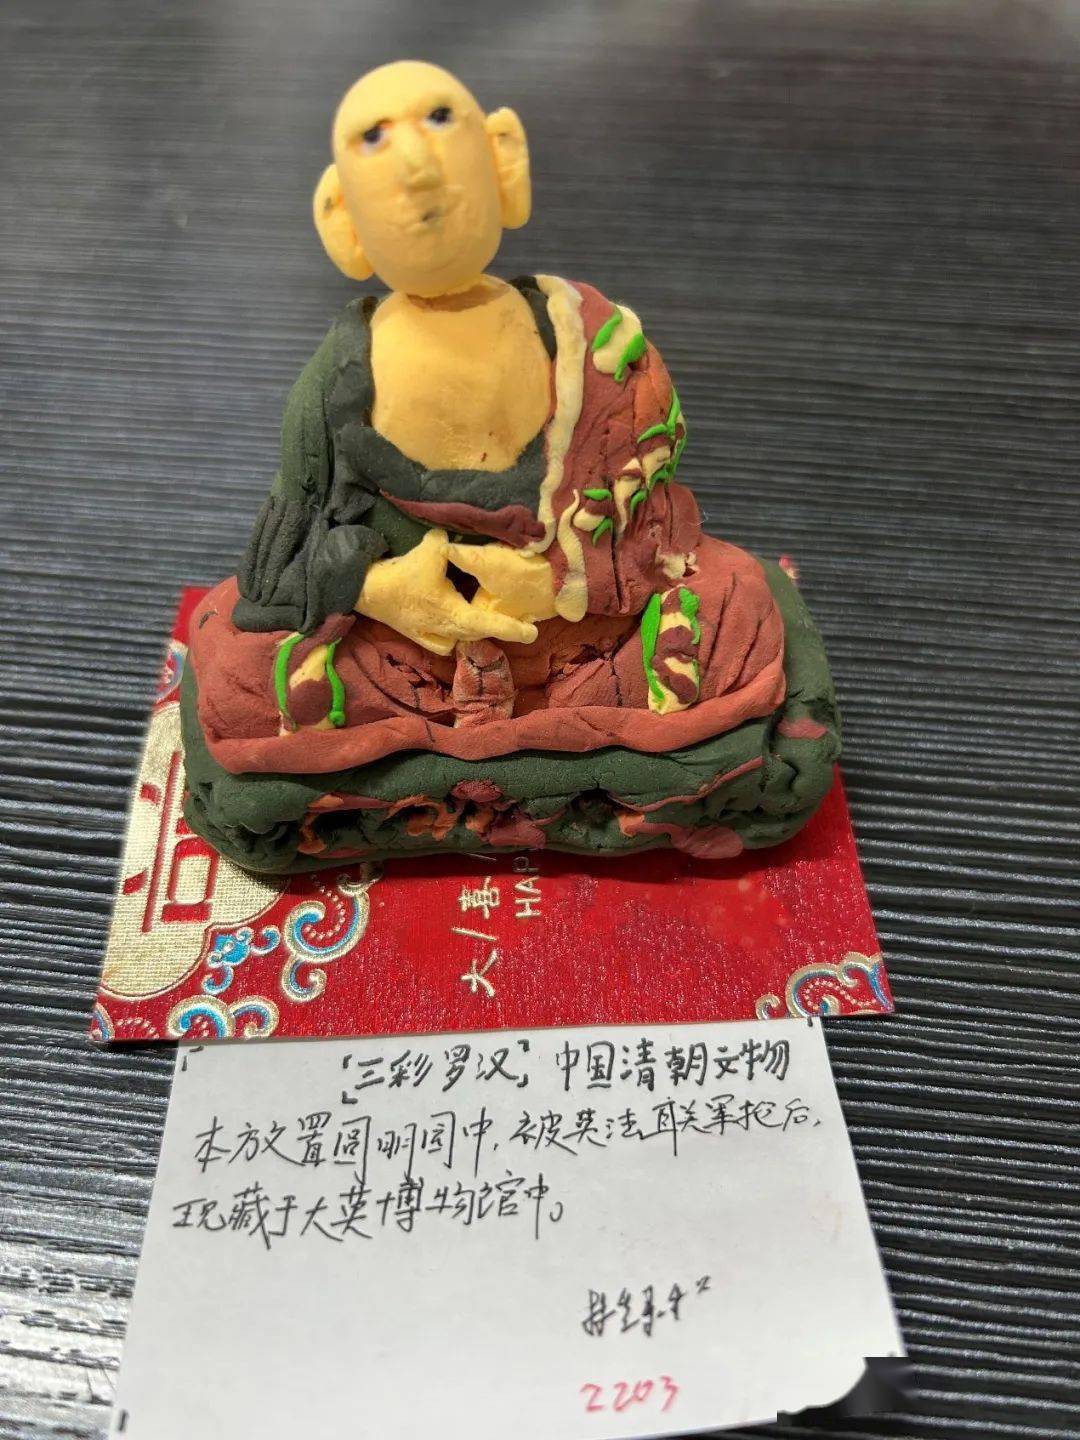 大/喜
HAP
「三彩罗汉」中国清朝文物
本放置圆明园中,被英法联军抢后,
现藏于大英博物馆中。
2203